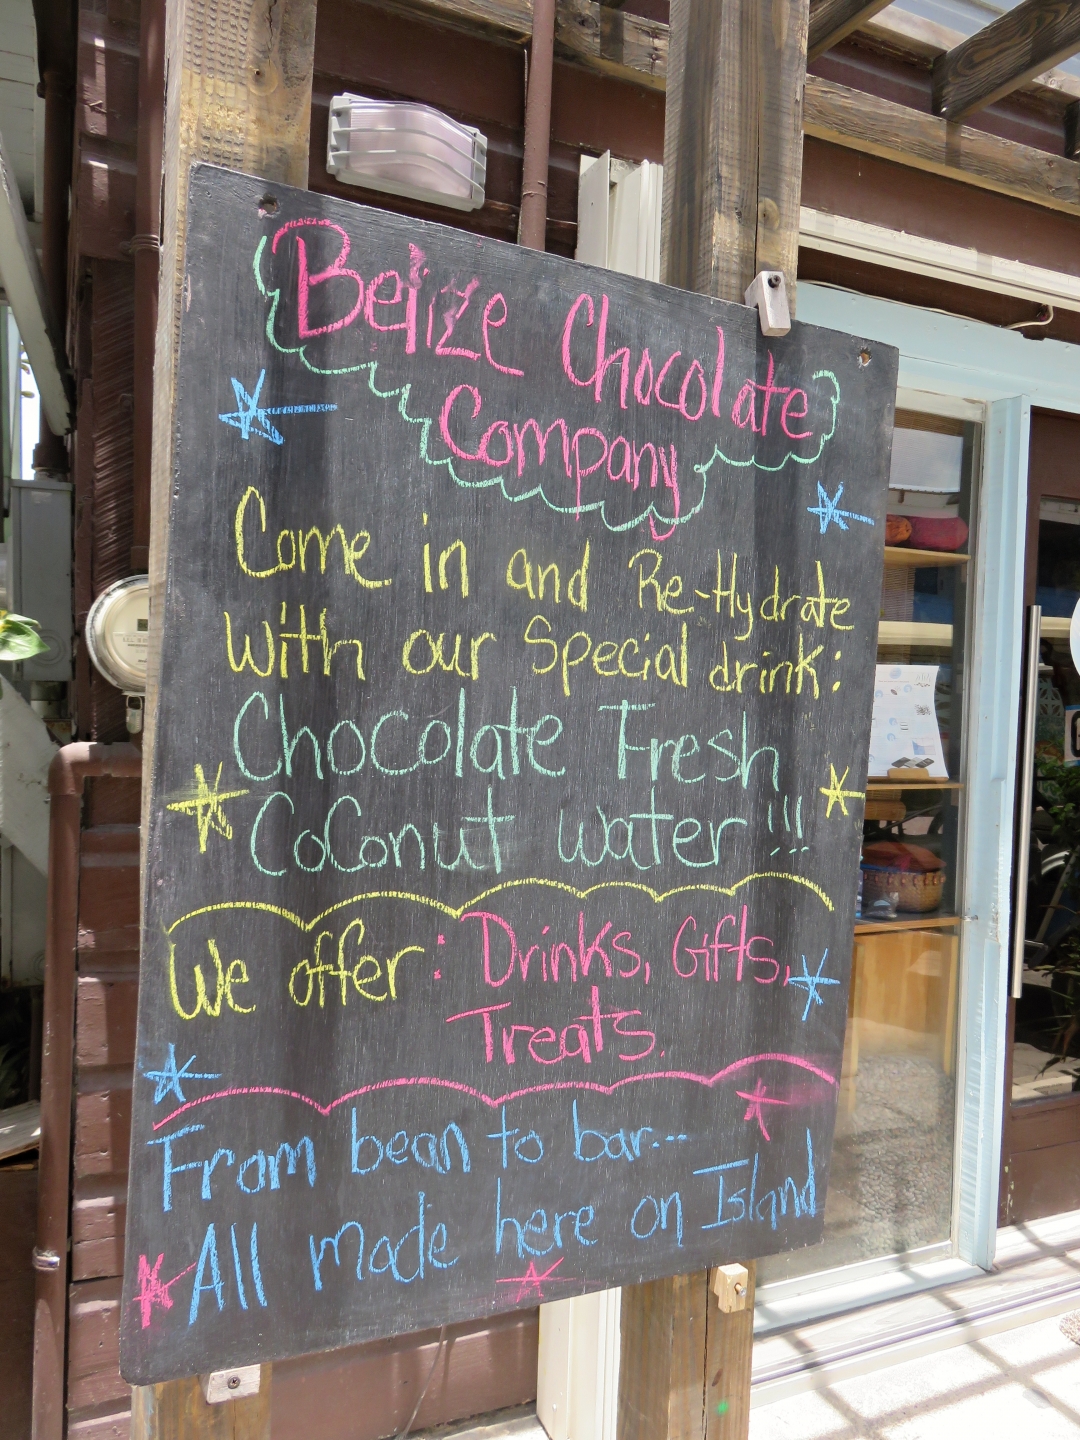 Belize Chocolate
Company
Come in and Re-Hydrate
with our Special drink:
Chocolate Fresh
CoConut water!!!
We offer: Drinks, Gifts,
Treats.
From bean to bar...
All made here on Island